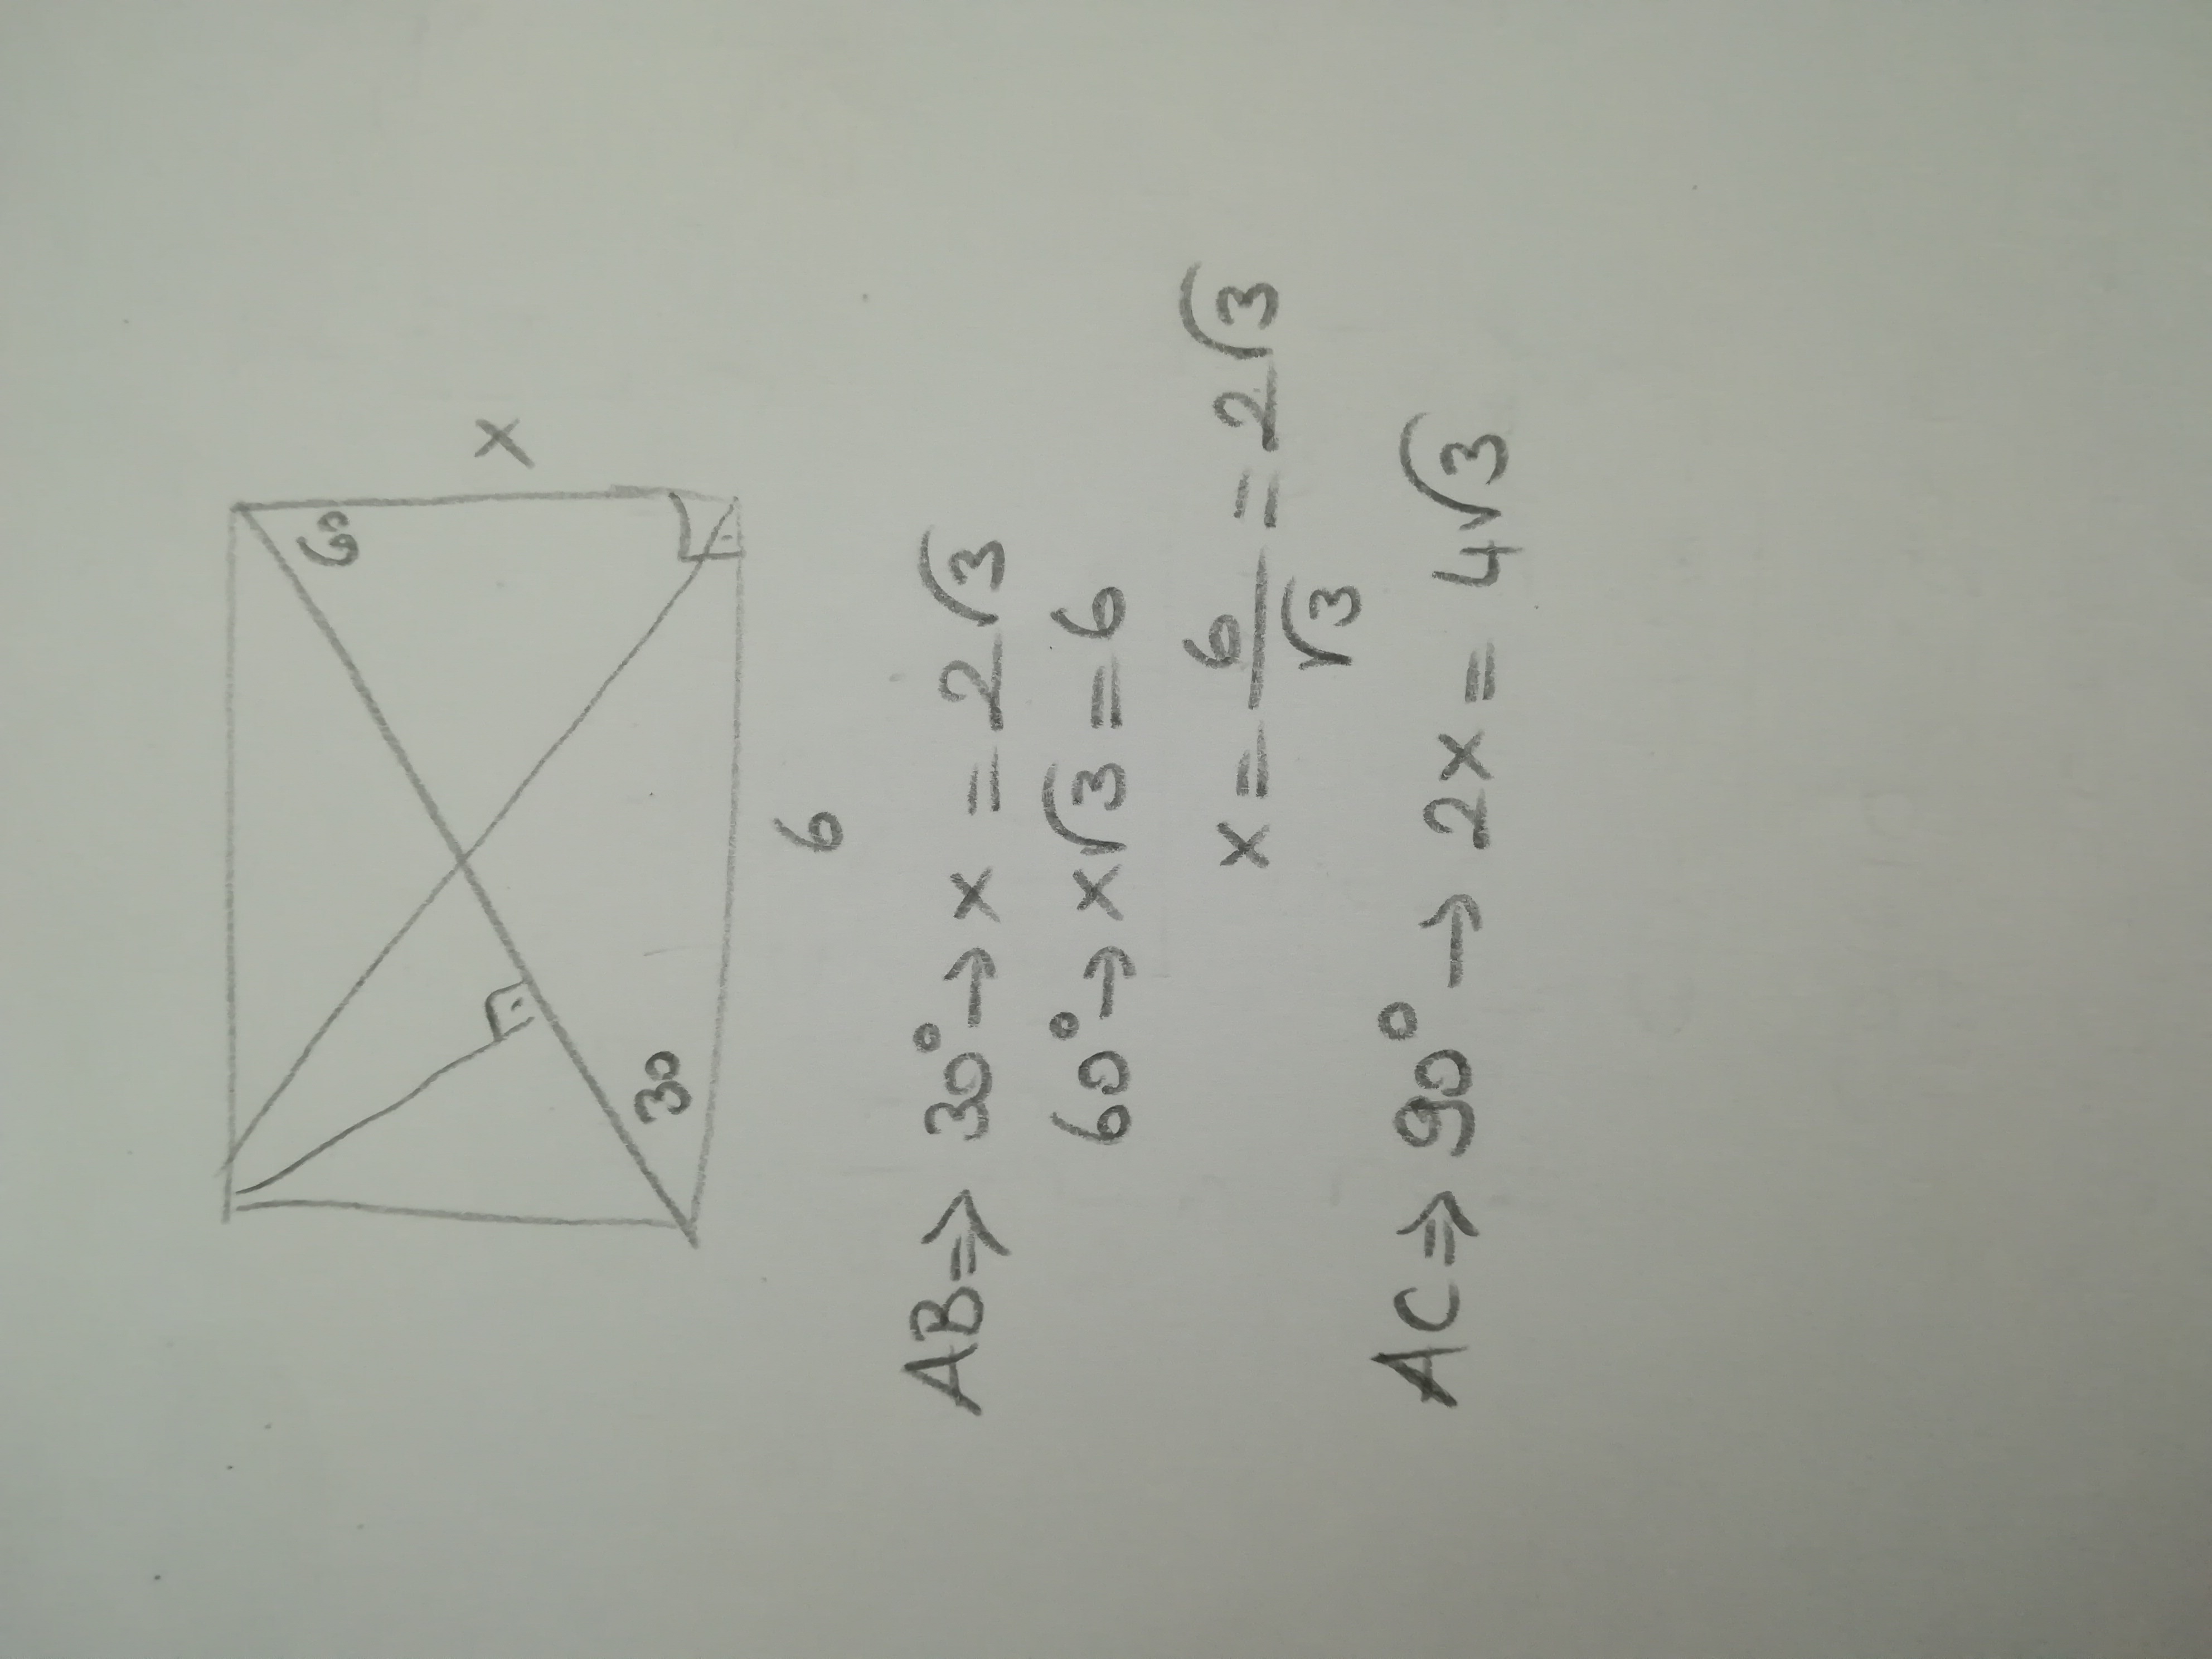 x
30
6
AB⇒ 30° → x = 2√3
60° → x√3 = 6
x = 6/√3 = 2√3
AC⇒ 90° → 2x = 4√3